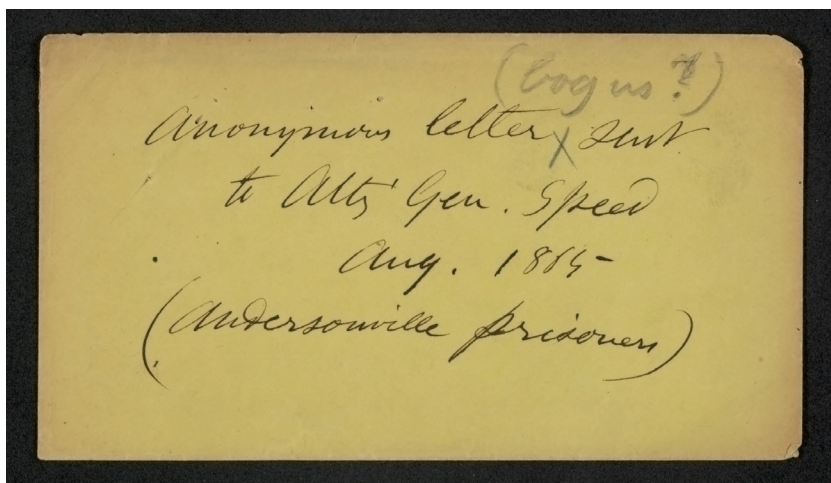 (bogus?)
Anonymous letter x sent
to Atty Gen. Speed
Aug. 1865
(Andersonville prisoners)